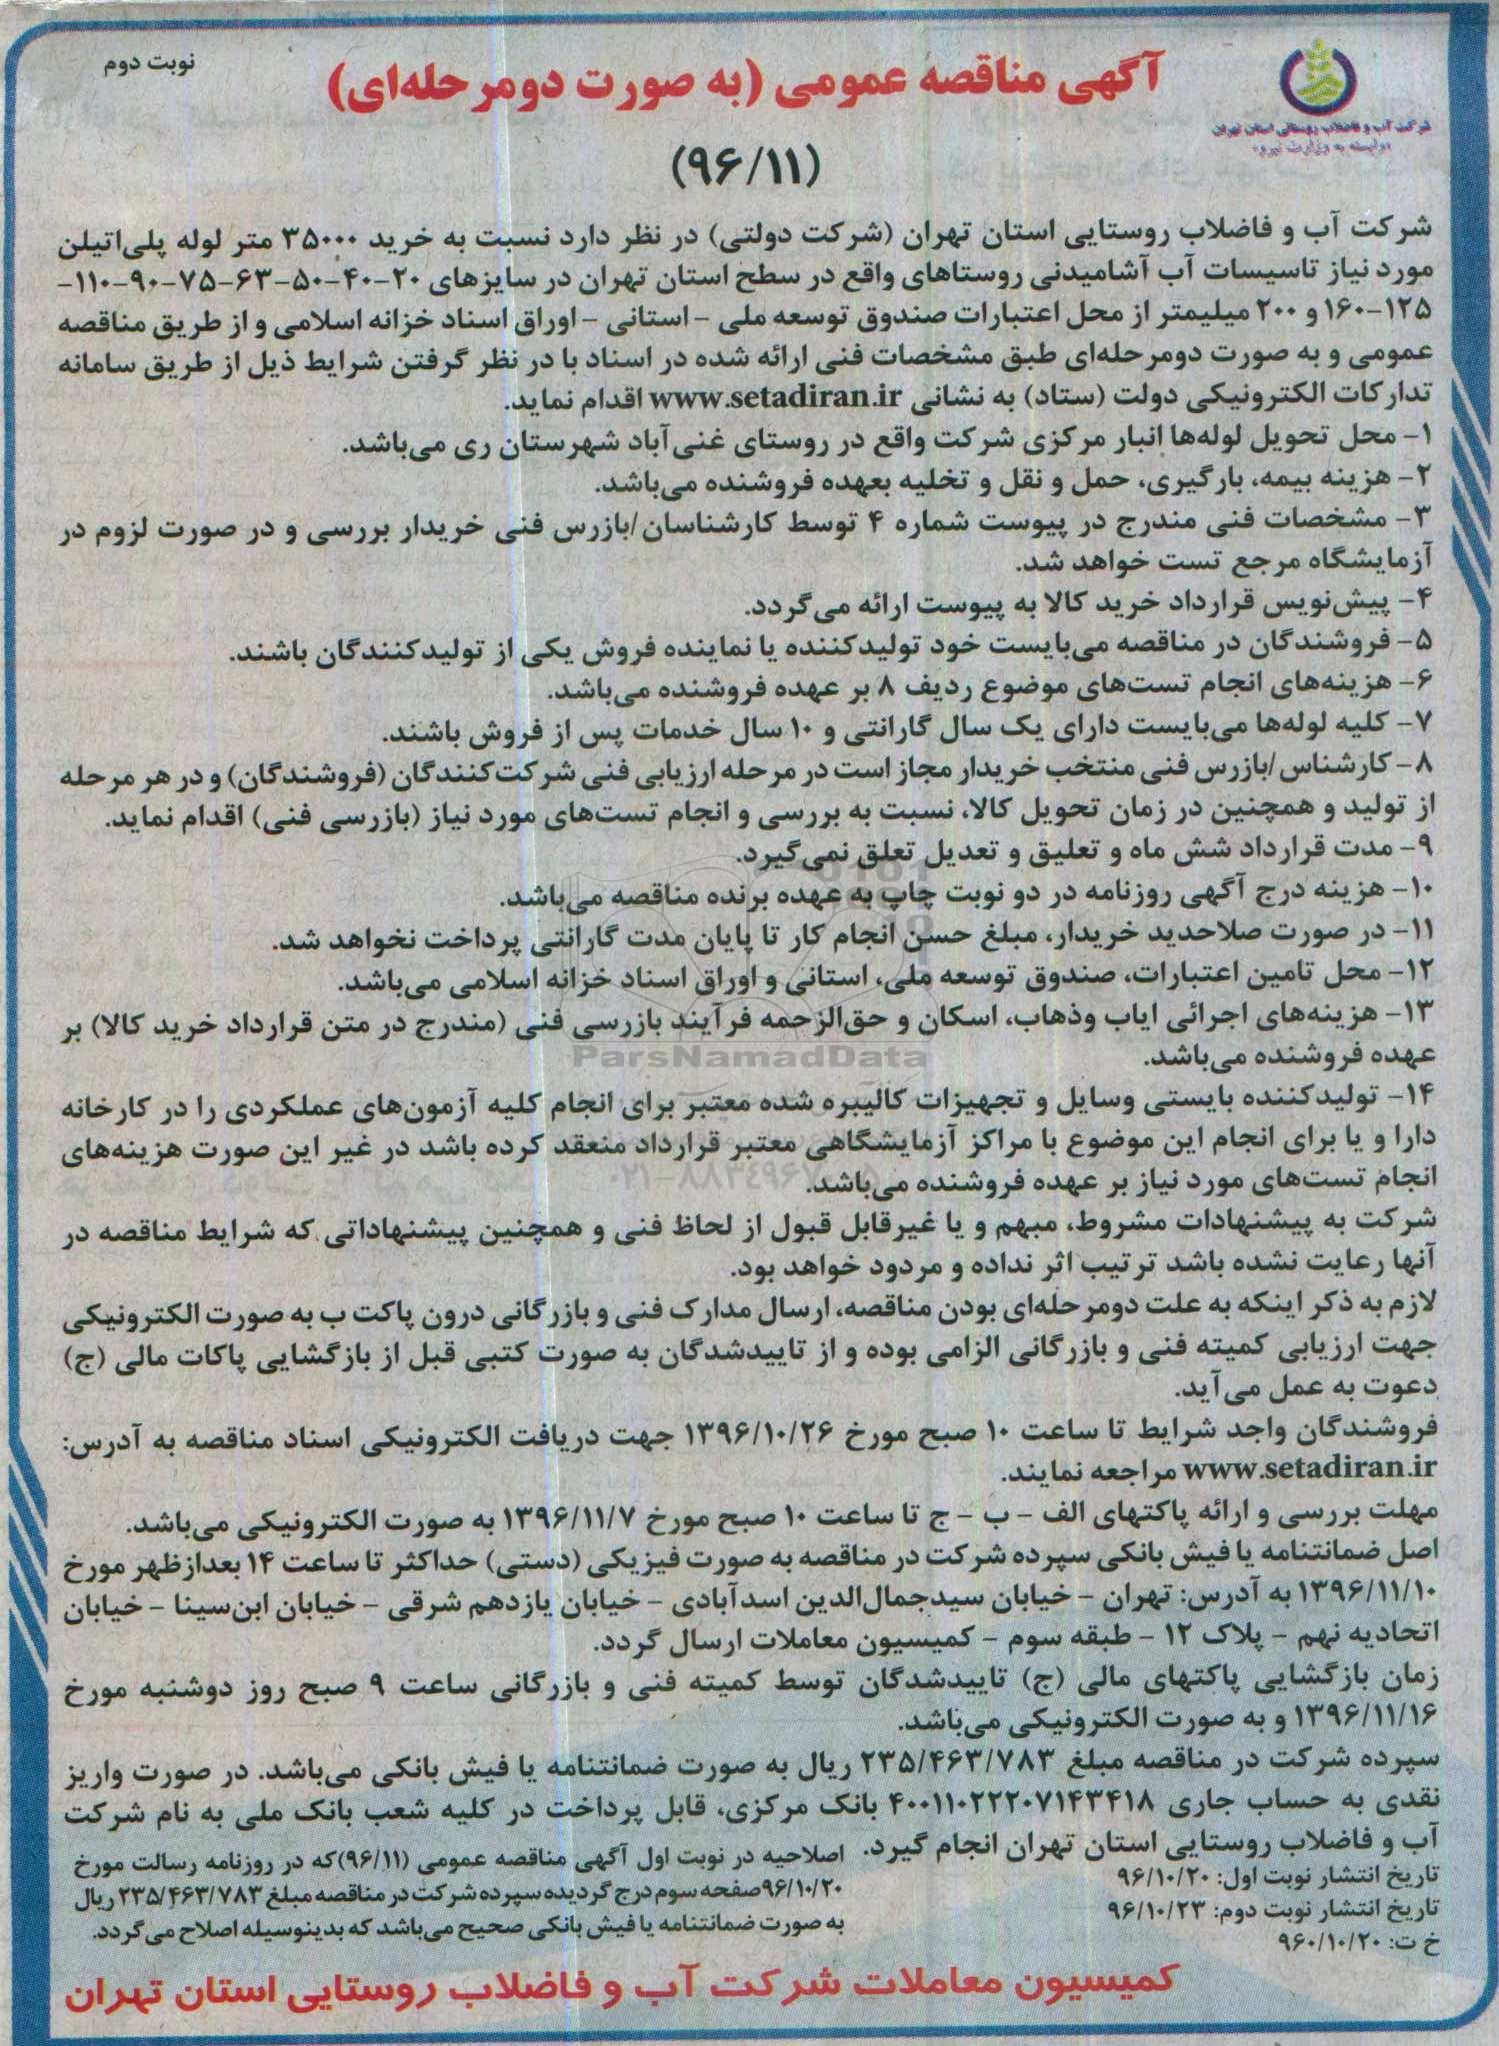 نوبت دوم
آگهی مناقصه عمومی (به صورت دومرحله‌ای)
(۹۶/۱۱)
شرکت آب و فاضلاب روستایی استان تهران
«وابسته به وزارت نیرو»
شرکت آب و فاضلاب روستایی استان تهران (شرکت دولتی) در نظر دارد نسبت به خرید ۳۵۰۰۰ متر لوله پلی‌اتیلن
مورد نیاز تاسیسات آب آشامیدنی روستاهای واقع در سطح استان تهران در سایزهای ۲۰-۴۰-۵۰-۶۳-۷۵-۹۰-۱۱۰-
۱۲۵-۱۶۰ و ۲۰۰ میلیمتر از محل اعتبارات صندوق توسعه ملی - استانی - اوراق اسناد خزانه اسلامی و از طریق مناقصه
عمومی و به صورت دومرحله‌ای طبق مشخصات فنی ارائه شده در اسناد با در نظر گرفتن شرایط ذیل از طریق سامانه
تدارکات الکترونیکی دولت (ستاد) به نشانی www.setadiran.ir اقدام نماید.
۱- محل تحویل لوله‌ها انبار مرکزی شرکت واقع در روستای غنی‌آباد شهرستان ری می‌باشد.
۲- هزینه بیمه، بارگیری، حمل و نقل و تخلیه بعهده فروشنده می‌باشد.
۳- مشخصات فنی مندرج در پیوست شماره ۴ توسط کارشناسان/بازرس فنی خریدار بررسی و در صورت لزوم در
آزمایشگاه مرجع تست خواهد شد.
۴- پیش‌نویس قرارداد خرید کالا به پیوست ارائه می‌گردد.
۵- فروشندگان در مناقصه می‌بایست خود تولیدکننده یا نماینده فروش یکی از تولیدکنندگان باشند.
۶- هزینه‌های انجام تست‌های موضوع ردیف ۸ بر عهده فروشنده می‌باشد.
۷- کلیه لوله‌ها می‌بایست دارای یک سال گارانتی و ۱۰ سال خدمات پس از فروش باشند.
۸- کارشناس/بازرس فنی منتخب خریدار مجاز است در مرحله ارزیابی فنی شرکت‌کنندگان (فروشندگان) و در هر مرحله
از تولید و همچنین در زمان تحویل کالا، نسبت به بررسی و انجام تست‌های مورد نیاز (بازرسی فنی) اقدام نماید.
۹- مدت قرارداد شش ماه و تعلیق و تعدیل تعلق نمی‌گیرد.
۱۰- هزینه درج آگهی روزنامه در دو نوبت چاپ به عهده برنده مناقصه می‌باشد.
۱۱- در صورت صلاحدید خریدار، مبلغ حسن انجام کار تا پایان مدت گارانتی پرداخت نخواهد شد.
۱۲- محل تامین اعتبارات، صندوق توسعه ملی، استانی و اوراق اسناد خزانه اسلامی می‌باشد.
۱۳- هزینه‌های اجرائی ایاب وذهاب، اسکان و حق‌الزحمه فرآیند بازرسی فنی (مندرج در متن قرارداد خرید کالا) بر
عهده فروشنده می‌باشد.
ParsNamadData
۱۴- تولیدکننده بایستی وسایل و تجهیزات کالیبره شده معتبر برای انجام کلیه آزمون‌های عملکردی را در کارخانه
دارا و یا برای انجام این موضوع با مراکز آزمایشگاهی معتبر قرارداد منعقد کرده باشد در غیر این صورت هزینه‌های
انجام تست‌های مورد نیاز بر عهده فروشنده می‌باشد.
شرکت به پیشنهادات مشروط، مبهم و یا غیرقابل قبول از لحاظ فنی و همچنین پیشنهاداتی که شرایط مناقصه در
آنها رعایت نشده باشد ترتیب اثر نداده و مردود خواهد بود.
لازم به ذکر اینکه به علت دومرحله‌ای بودن مناقصه، ارسال مدارک فنی و بازرگانی درون پاکت ب به صورت الکترونیکی
جهت ارزیابی کمیته فنی و بازرگانی الزامی بوده و از تاییدشدگان به صورت کتبی قبل از بازگشایی پاکات مالی (ج)
دعوت به عمل می‌آید.
فروشندگان واجد شرایط تا ساعت ۱۰ صبح مورخ ۱۳۹۶/۱۰/۲۶ جهت دریافت الکترونیکی اسناد مناقصه به آدرس:
www.setadiran.ir مراجعه نمایند.
مهلت بررسی و ارائه پاکتهای الف - ب - ج تا ساعت ۱۰ صبح مورخ ۱۳۹۶/۱۱/۷ به صورت الکترونیکی می‌باشد.
اصل ضمانتنامه یا فیش بانکی سپرده شرکت در مناقصه به صورت فیزیکی (دستی) حداکثر تا ساعت ۱۴ بعدازظهر مورخ
۱۳۹۶/۱۱/۱۰ به آدرس: تهران - خیابان سیدجمال‌الدین اسدآبادی - خیابان یازدهم شرقی - خیابان ابن‌سینا - خیابان
اتحادیه نهم - پلاک ۱۲ - طبقه سوم - کمیسیون معاملات ارسال گردد.
زمان بازگشایی پاکتهای مالی (ج) تاییدشدگان توسط کمیته فنی و بازرگانی ساعت ۹ صبح روز دوشنبه مورخ
۱۳۹۶/۱۱/۱۶ و به صورت الکترونیکی می‌باشد.
سپرده شرکت در مناقصه مبلغ ۲۳۵/۴۶۳/۷۸۳ ریال به صورت ضمانتنامه یا فیش بانکی می‌باشد. در صورت واریز
نقدی به حساب جاری ۴۰۰۱۱۰۲۲۲۰۷۱۴۳۴۱۸ بانک مرکزی، قابل پرداخت در کلیه شعب بانک ملی به نام شرکت
آب و فاضلاب روستایی استان تهران انجام گیرد.
تاریخ انتشار نوبت اول: ۹۶/۱۰/۲۰
تاریخ انتشار نوبت دوم: ۹۶/۱۰/۲۳
خ ت: ۹۶۰/۱۰/۲۰
اصلاحیه در نوبت اول آگهی مناقصه عمومی (۹۶/۱۱)که در روزنامه رسالت مورخ
۹۶/۱۰/۲۰صفحه سوم درج گردیده سپرده شرکت در مناقصه مبلغ ۲۳۵/۴۶۳/۷۸۳ ریال
به صورت ضمانتنامه یا فیش بانکی صحیح می‌باشد که بدینوسیله اصلاح می‌گردد.
کمیسیون معاملات شرکت آب و فاضلاب روستایی استان تهران